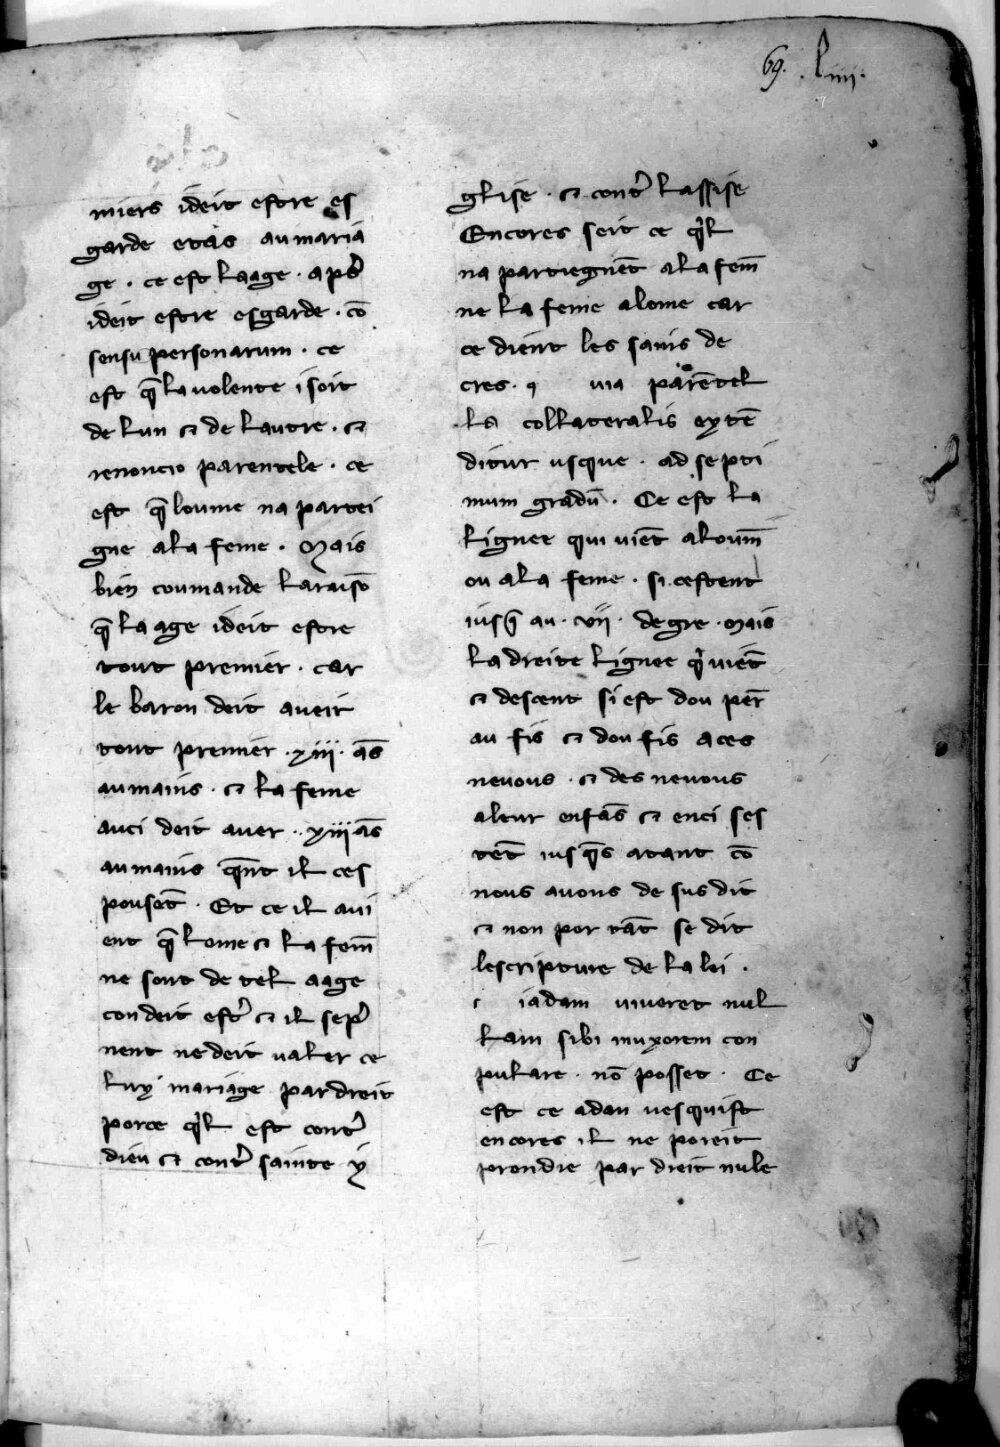 69. . liiii.
miers ideit estre es
garde etas au maria
ge . ce est laage . apś
ideit estre esgarde . cō
sensu personarum . ce
est q̄ la volente i soit
de lun ⁊ de lautre . ⁊
renoncio parentele . ce
est q̄ loume na partei
gne a la feme . Mais
bien coumande la raisō
q̄ la age ideit estre
tout premier . car
le baron deit aveir
tout premier . xiii . ās
au mains . ⁊ la feme
auci deit aver . . xiii ās
au mains q̄nt il ces
pousēt . Et ce il avi
ent q̄ lome ⁊ la fem̄
ne sont de tel aage
con deit est᾿ ⁊ il sep᾿
nent ne deit valer ce
luy mariage par dreit
por ce q̓l est cont᾿
dieu ⁊ cont᾿ sainte y
glise . ⁊ cont᾿ lassise
Encores seit ce q̓l
na partiegnēt a la fem̄
ne la feme a lome car
ce dient les sains de
cres . q via parētel
la collateralis extē
ditur usque . ad septi
mum gradū . Ce est la
lignee qui viēt a loum̄
ou a la feme . si cestent
iusq̄ au . vii . degre . Mais
la dreite lignee q̓ viēt
⁊ descent si est dou per̄
au fis ⁊ dou fis a ces
nevous . ⁊ des nevous
a leur enfās ⁊ enci ses
tēt iusq̄s atant cō
nous avons de sus dit
⁊ non por tāt se dit
lescripture de la lei .
i iadam viveret nul
lam sibi in uxorem con
pulare . nō posset . Ce
est ce adan vesquist
encores il ne poreit
prendre par dreit nule